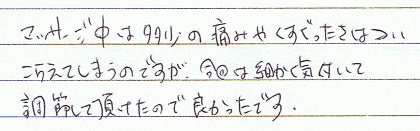 マッサージ中は多少の痛みやくすぐったさはつい
こらえてしまうのですが、今回は細かく気付いて
調節して頂けたので良かったです.